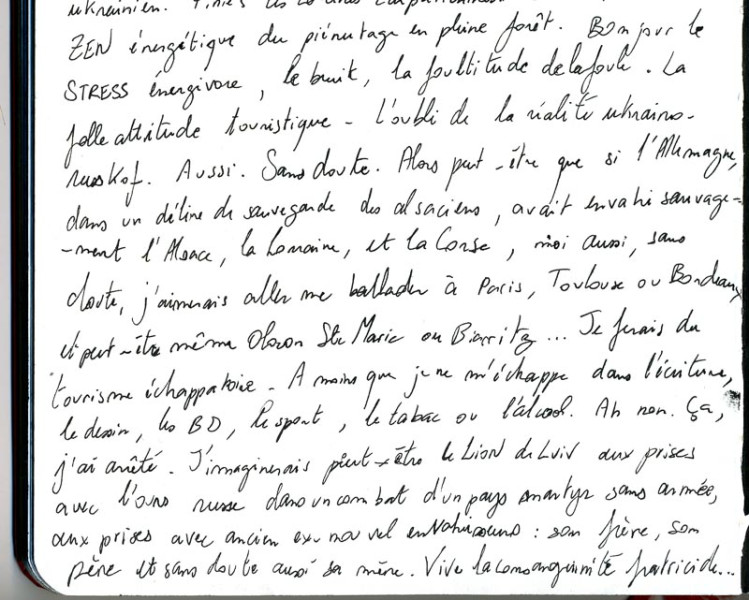 ukrainien. Finies les
ZEN énergétique du piénutage en pleine forêt. Bonjour le
STRESS énergivore, le bruit, la foultitude de la foule. La
folle attitude touristique - l'oubli de la réalité ukraino-
russkof. Aussi. Sans doute. Alors peut-être que si l'Allemagne,
dans un délire de sauvegarde des alsaciens, avait envahi sauvage-
-ment l'Alsace, la Lorraine, et la Corse, moi aussi, sans
doute, j'aimerais aller me ballader à Paris, Toulouse ou Bordeaux,
et peut-être même Oloron Ste Marie ou Biarritz... Je ferais du
tourisme échappatoire - A moins que je ne m'échappe dans l'écriture,
le dessin, les BD, le sport, le tabac ou l'alcool. Ah non. Ça,
j'ai arrêté. J'imaginerais peut-être le Lion de Lviv aux prises
avec l'ours russe dans un combat d'un pays martyr sans armée,
aux prises avec ancien ex-nouvel envahisseurs : son frère, son
père et sans doute aussi sa mère. Vive la consanguinité fratricide...